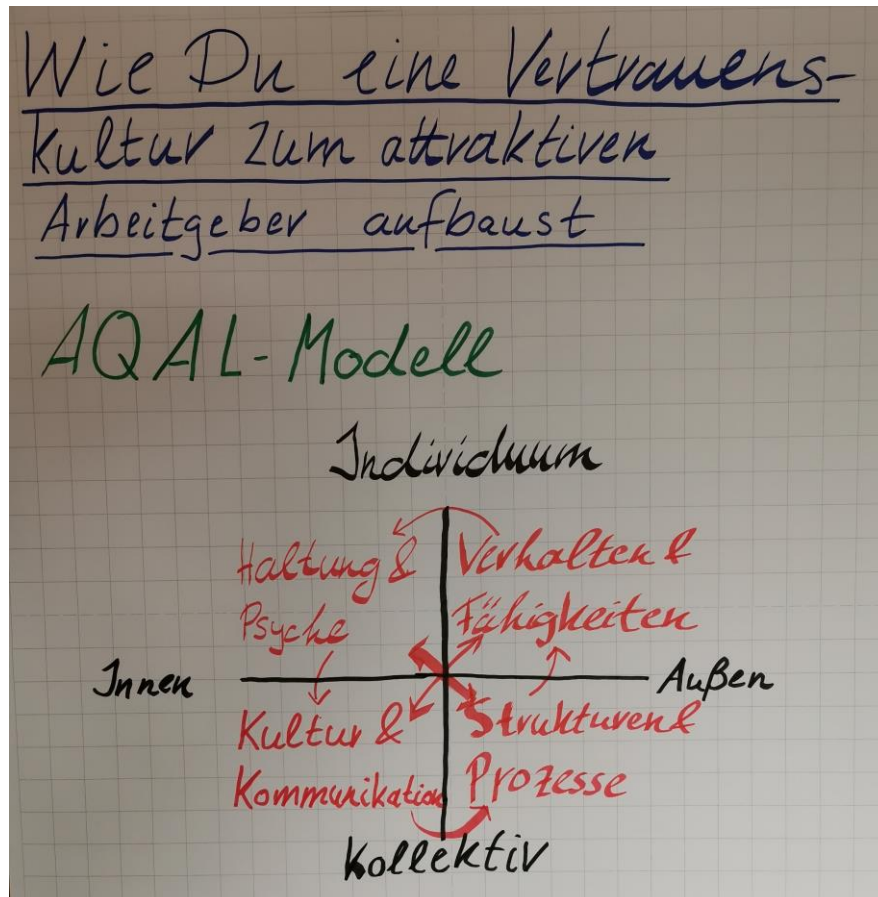 Wie Du eine Vertrauens-
kultur zum attraktiven
Arbeitgeber aufbaust
AQAL-Modell
Individuum
Haltung &
Psyche
Verhalten &
Fähigkeiten
Innen
Außen
Kultur &
Kommunikation
Strukturen &
Prozesse
Kollektiv